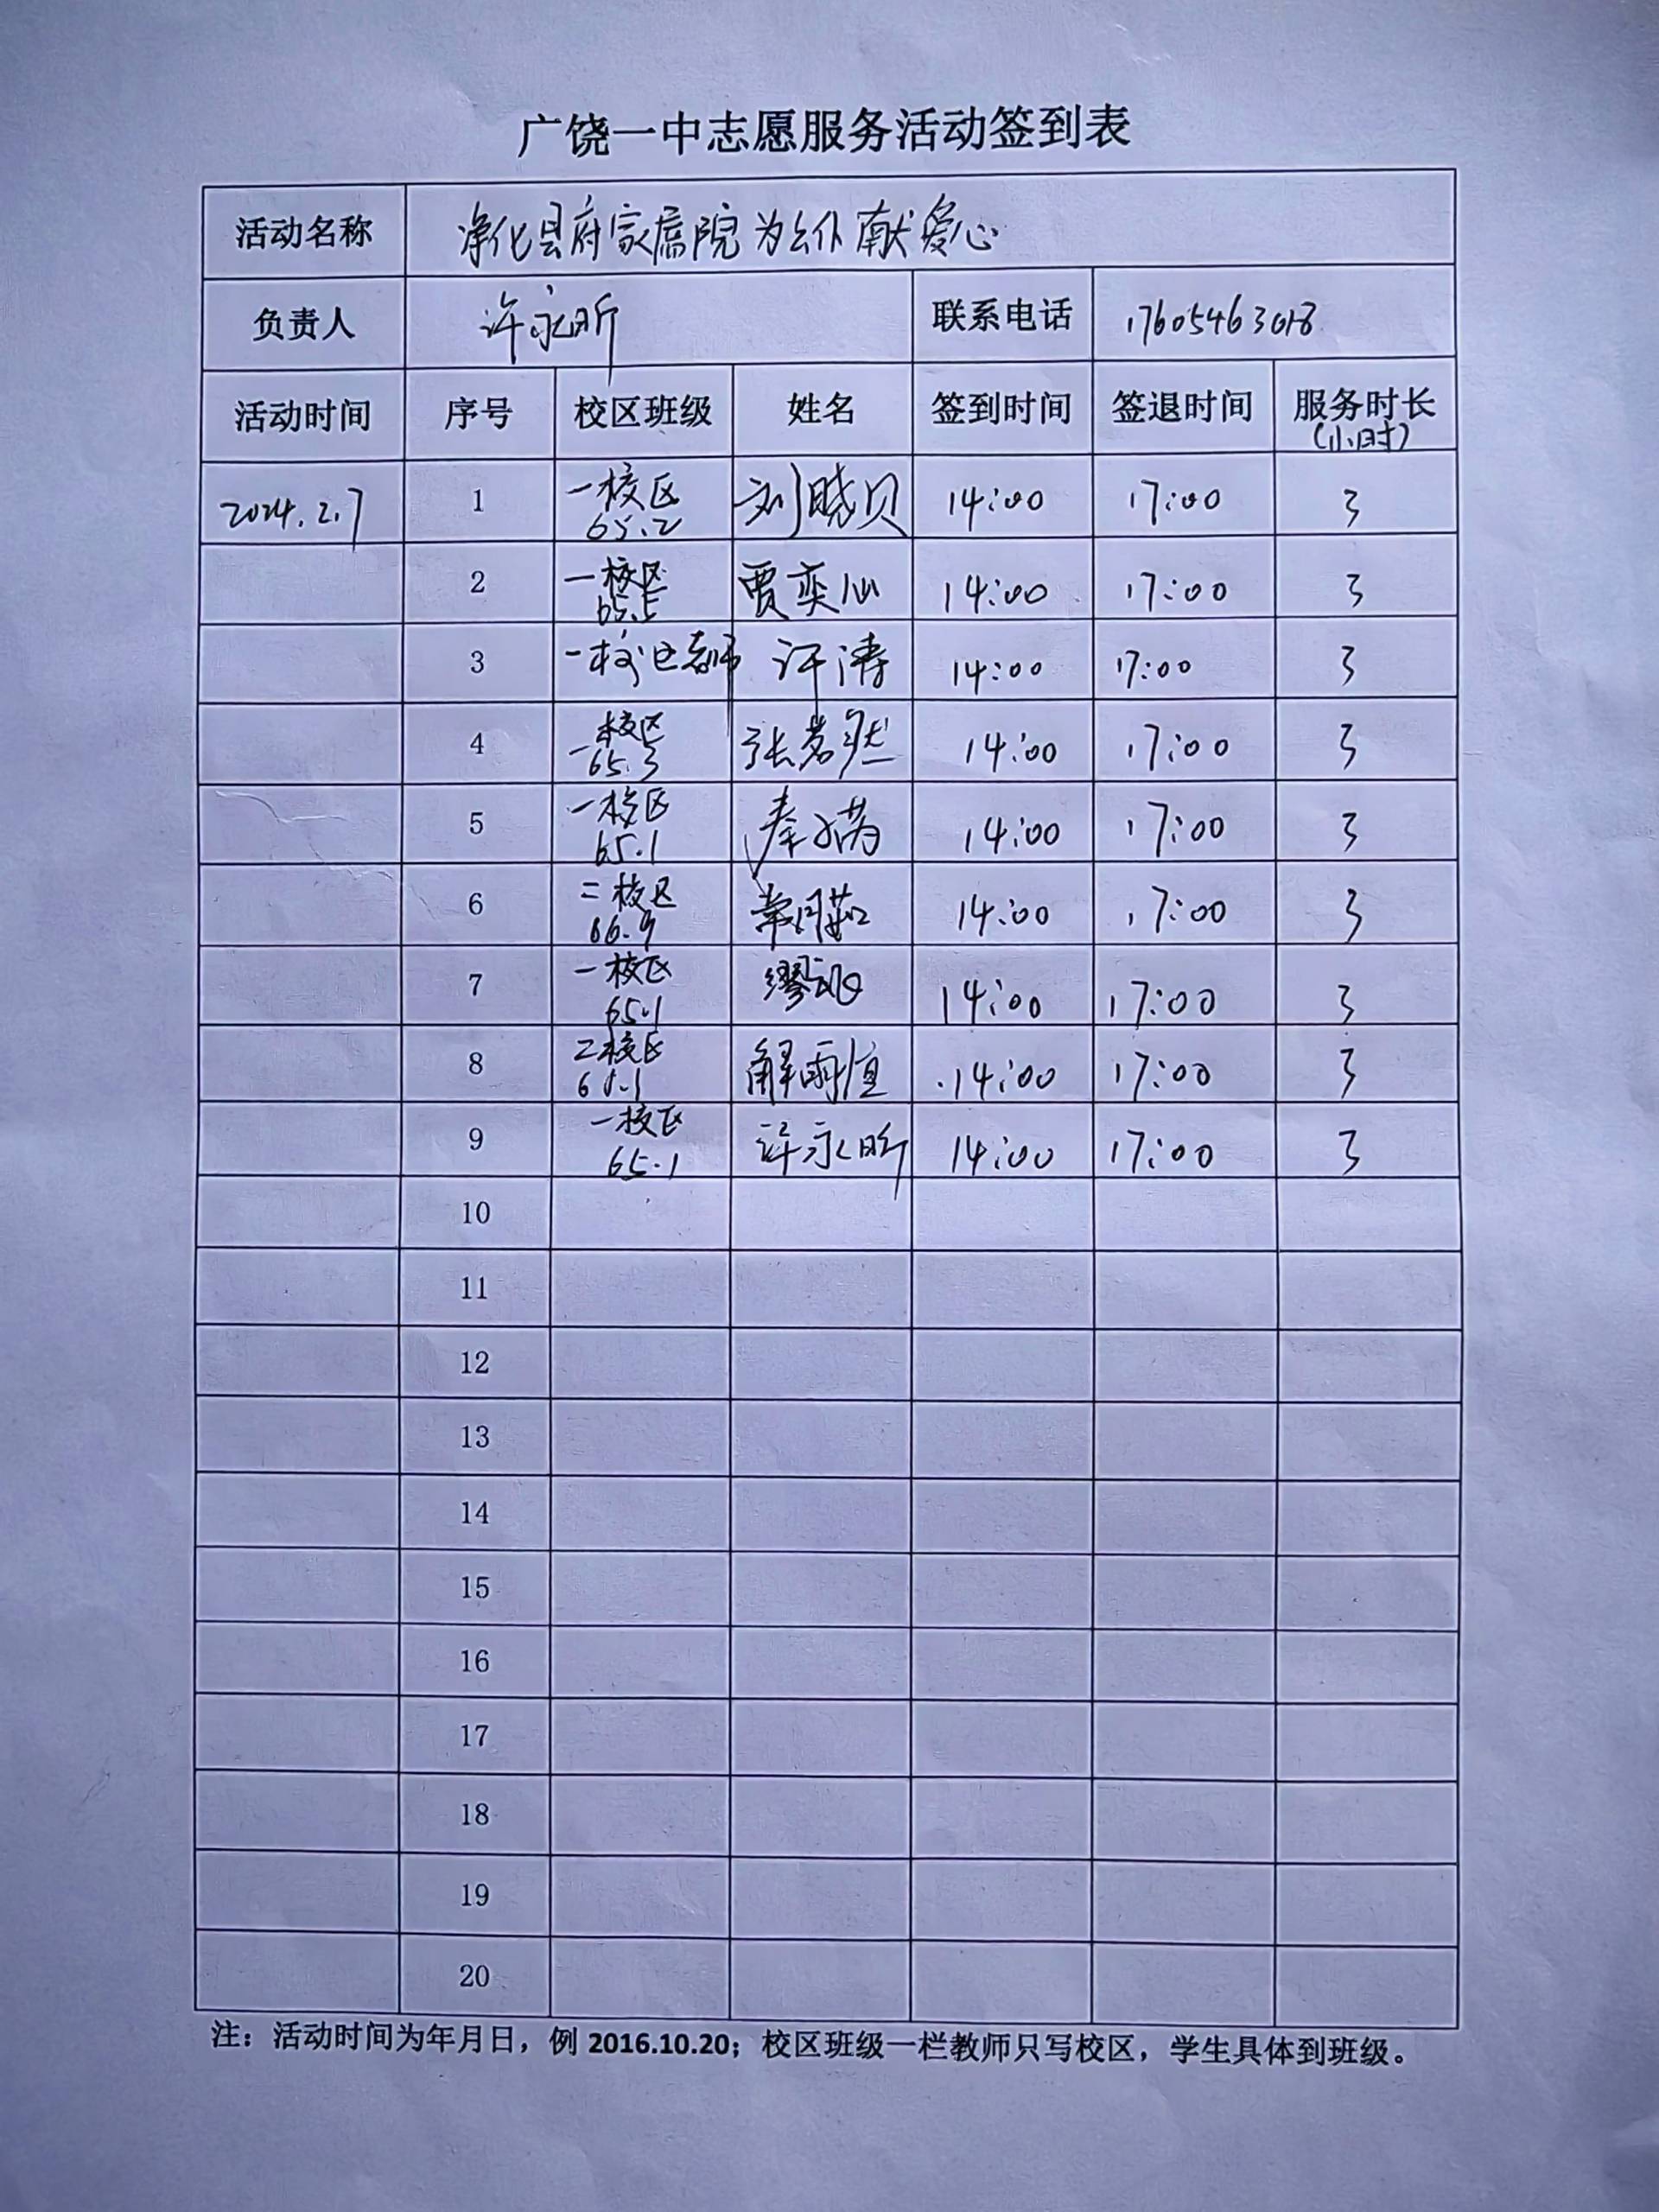 广饶一中志愿服务活动签到表
活动名称 净化县府家属院为幺仆献爱心
负责人 许永昕 联系电话 17605463018
活动时间 序号 校区班级 姓名 签到时间 签退时间 服务时长
(小时)
2024.2.7 1 一校区 刘晓贝 14:00 17:00 3
65.2
2 一校区 贾奕心 14:00 17:00 3
65.5
3 一校区老师 许涛 14:00 17:00 3
4 一校区 张茗然 14:00 17:00 3
65.3
5 一校区 14:00 17:00 3
65.1
6 二校区 14:00 17:00 3
66.9
7 一校区 14:00 17:00 3
65.1
8 二校区 解雨恒 14:00 17:00 3
9 一校区 许永昕 14:00 17:00 3
65.1
10
11
12
13
14
15
16
17
18
19
20
注：活动时间为年月日，例 2016.10.20；校区班级一栏教师只写校区，学生具体到班级。